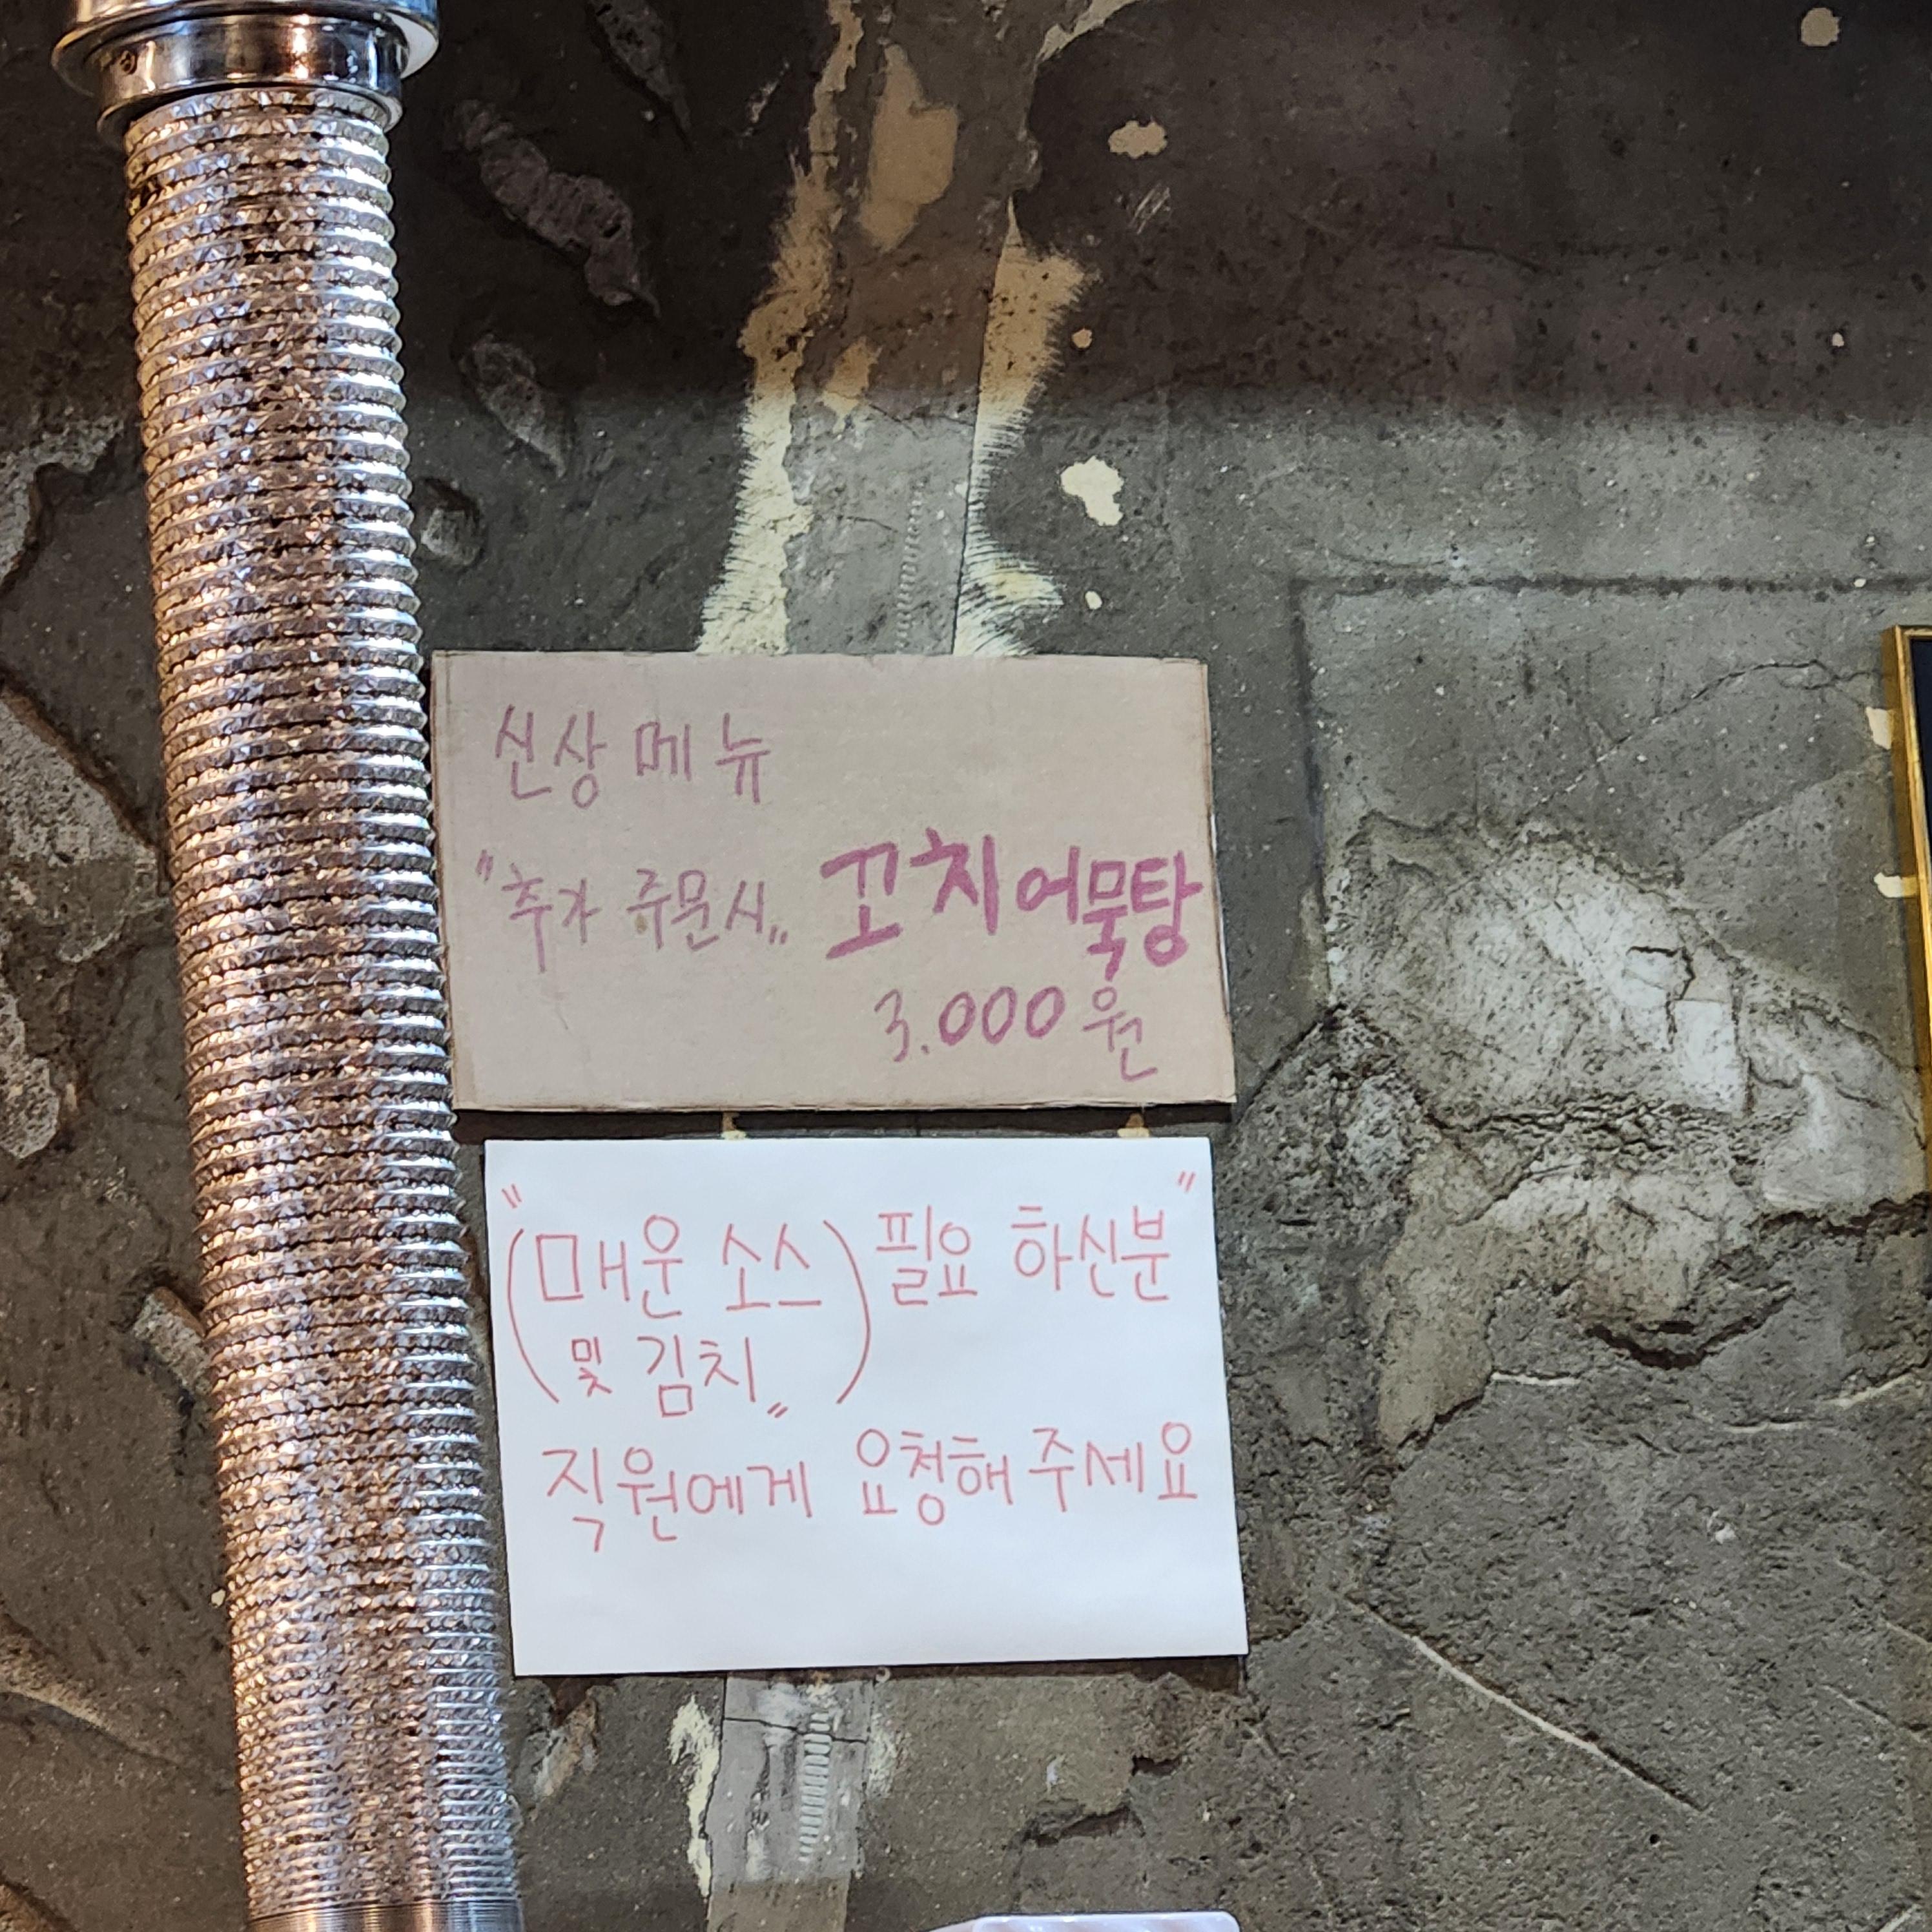 신상 메뉴
"추가 주문시" 꼬치어묵탕
3.000원
"(매운 소스 및 김치") 필요 하신분"
직원에게 요청해주세요